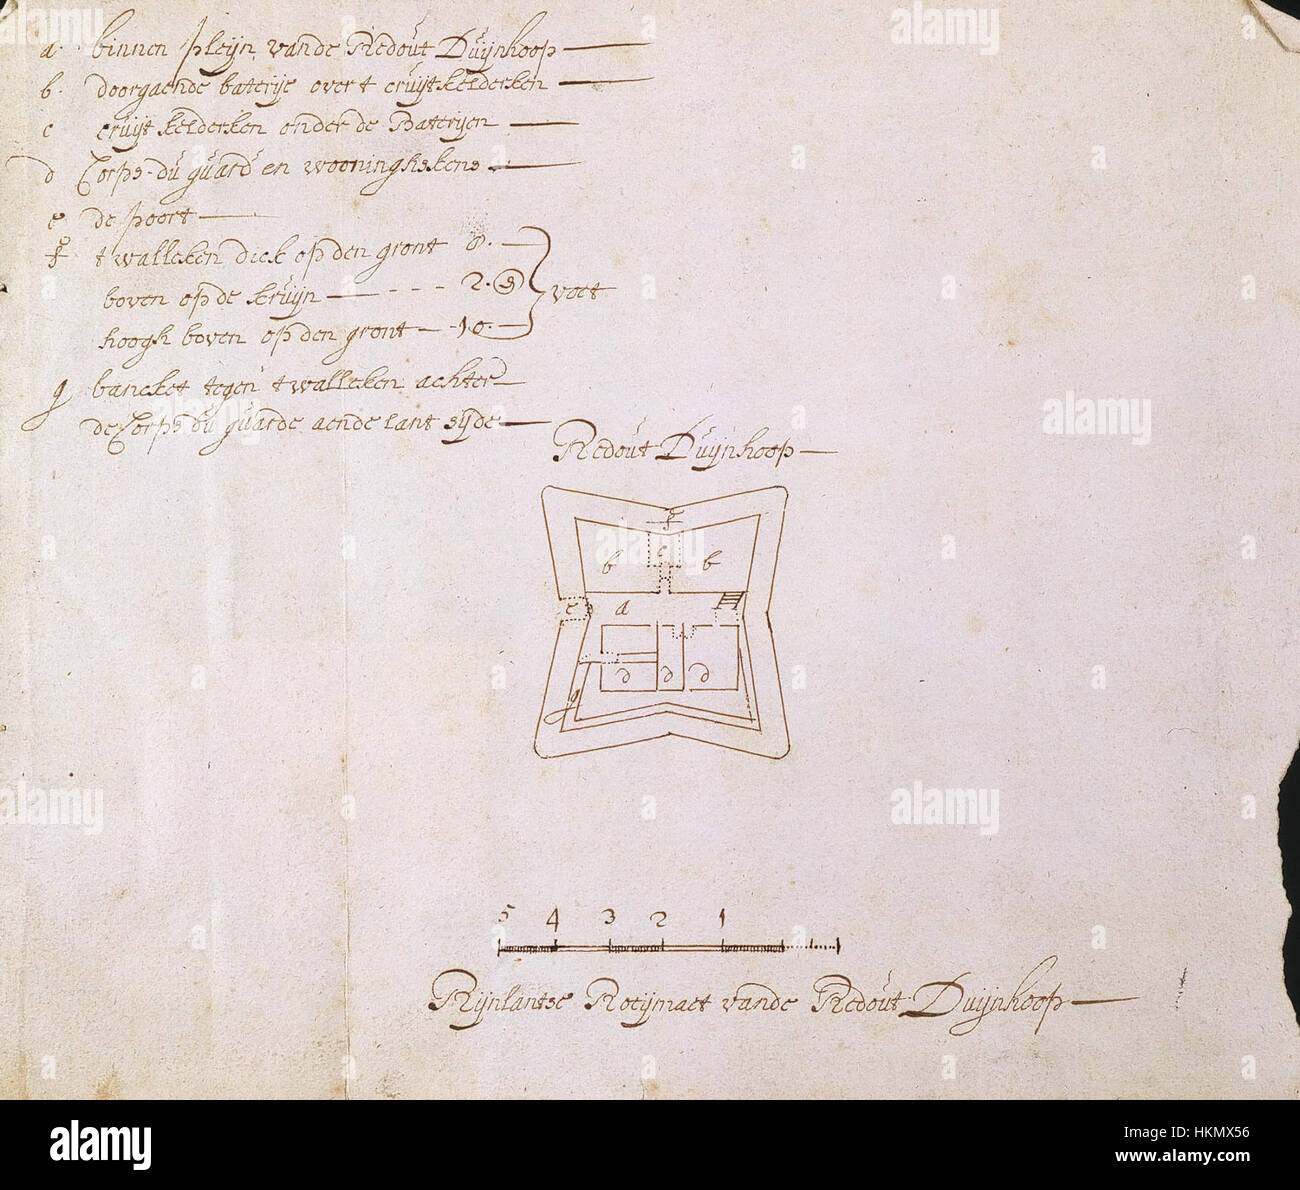 a. binnen pleijn vande Redout Duijnhoop
b. doorgaende baterije over t cruijtkelderken
c cruijt kelderken onder de Baterijen
d Corps-du guard en wooninghskens
e de poort
f t walleken dick op den gront 8.
boven op de kruijn 2.
hoogh boven op den gront 10. voet
g bancket tegen t walleken achter
de Corps du guarde aende lant sijde
Redout Duijnhoop
f
b c b
e a
d d d
g
5 4 3 2 1
Rijnlantse Roeijmaet vande Redout Duijnhoop
alamy
alamy
alamy
alamy
alamy
alamy
alamy
Image ID: HKMX56
www.alamy.com